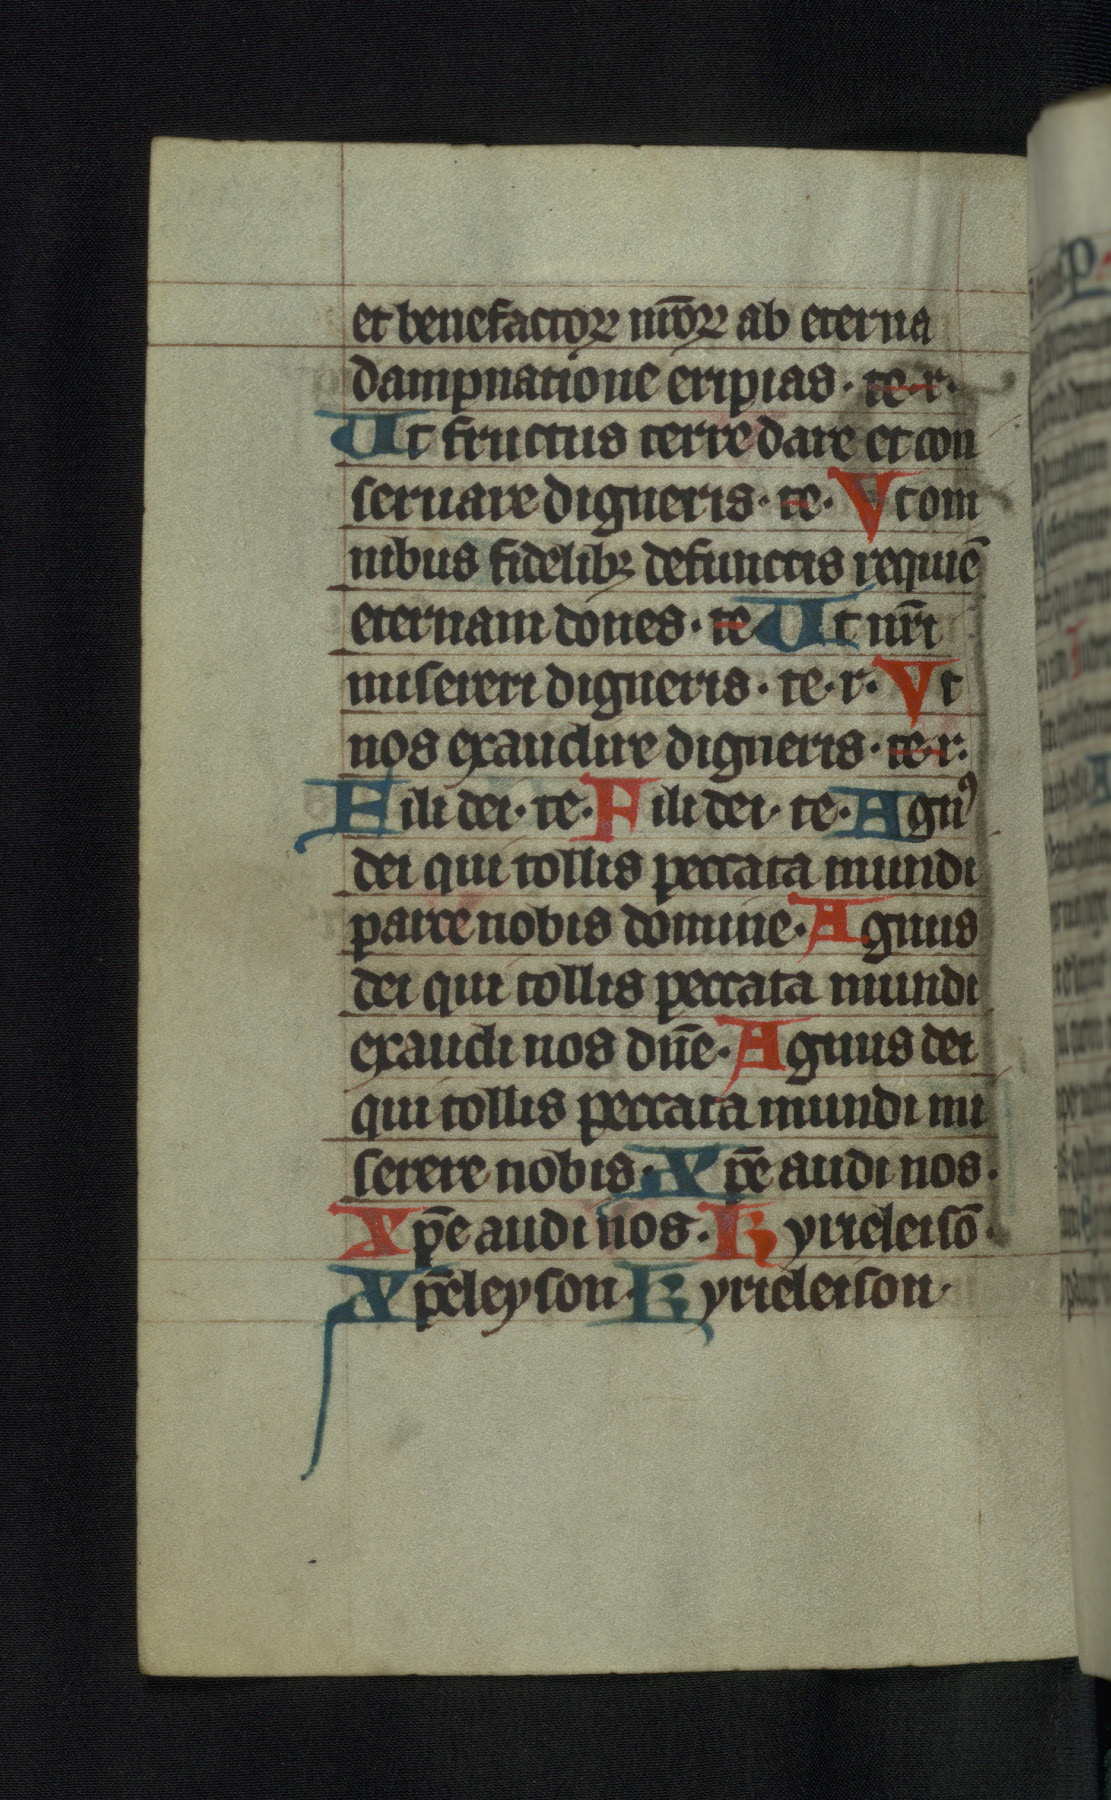 et benefactoꝝ nr̄oꝝ ab eterna
dampnatione eripias · te · r ·
Ut fructus terre dare et con
seruare digneris · te · Vt om
nibus fidelibꝫ defunctis requiē
eternam dones · te Ut nr̄i
misereri digneris · te · r · Vt
nos exaudire digneris · te · r ·
Fili dei · te · Fili dei · te · Agnꝰ
dei qui tollis peccata mundi
parce nobis domine · Agnus
dei qui tollis peccata mundi
exaudi nos dn̄e · Agnus dei
qui tollis peccata mundi mi
serere nobis · Xp̄e audi nos ·
Xp̄e audi nos · Kyrieleisō ·
Xp̄eleyson · Kyrieleison ·